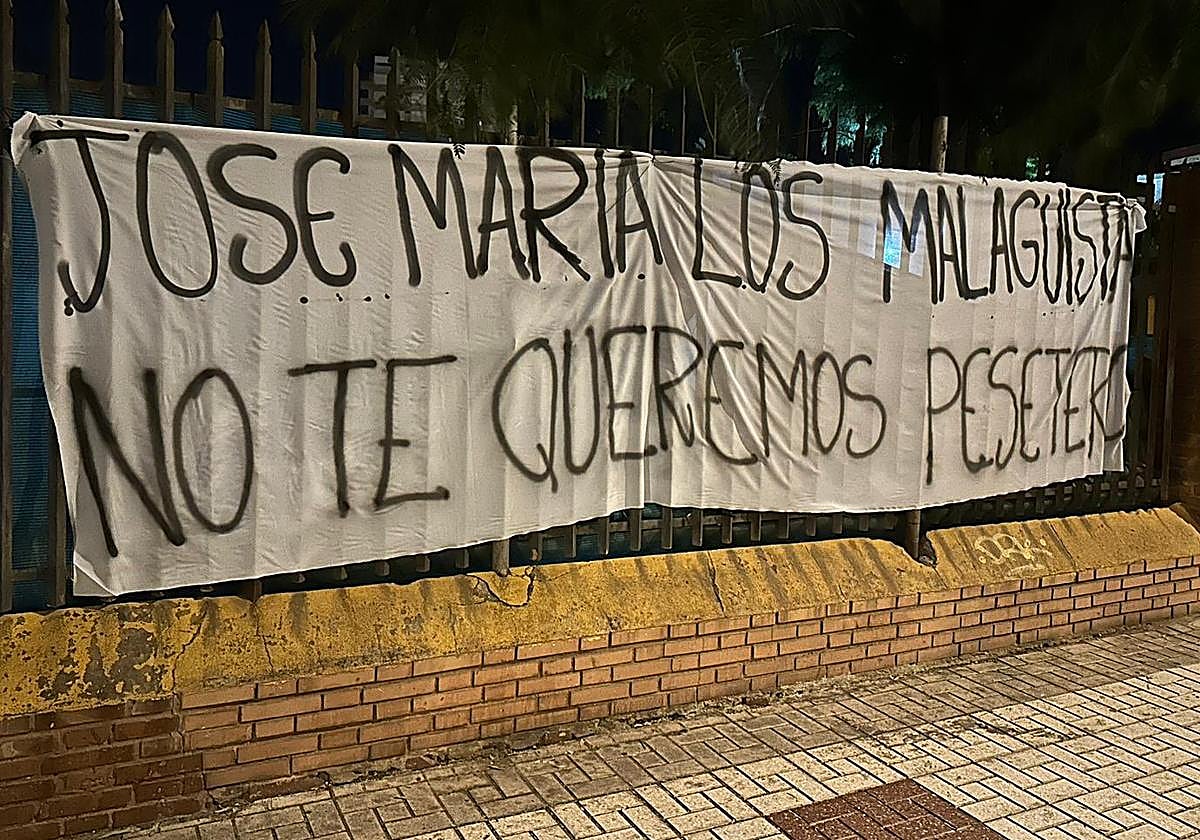 JOSE MARIA LOS MALAGUISTA
NO TE QUEREMOS PESETERO